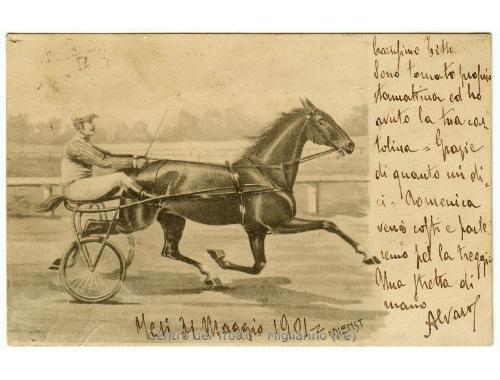 Carissimo Titto
Sono tornato proprio
stamattina ed ho
avuto la tua car-
tolina = Grazie
di quanto mi di-
ci = Domenica
verrò costì e parle
remo pel la treggia
Una stretta di
mano
Alvaro
Jesi 31 Maggio 1901 =
Centro del Trotto - Miglianino (Fe)